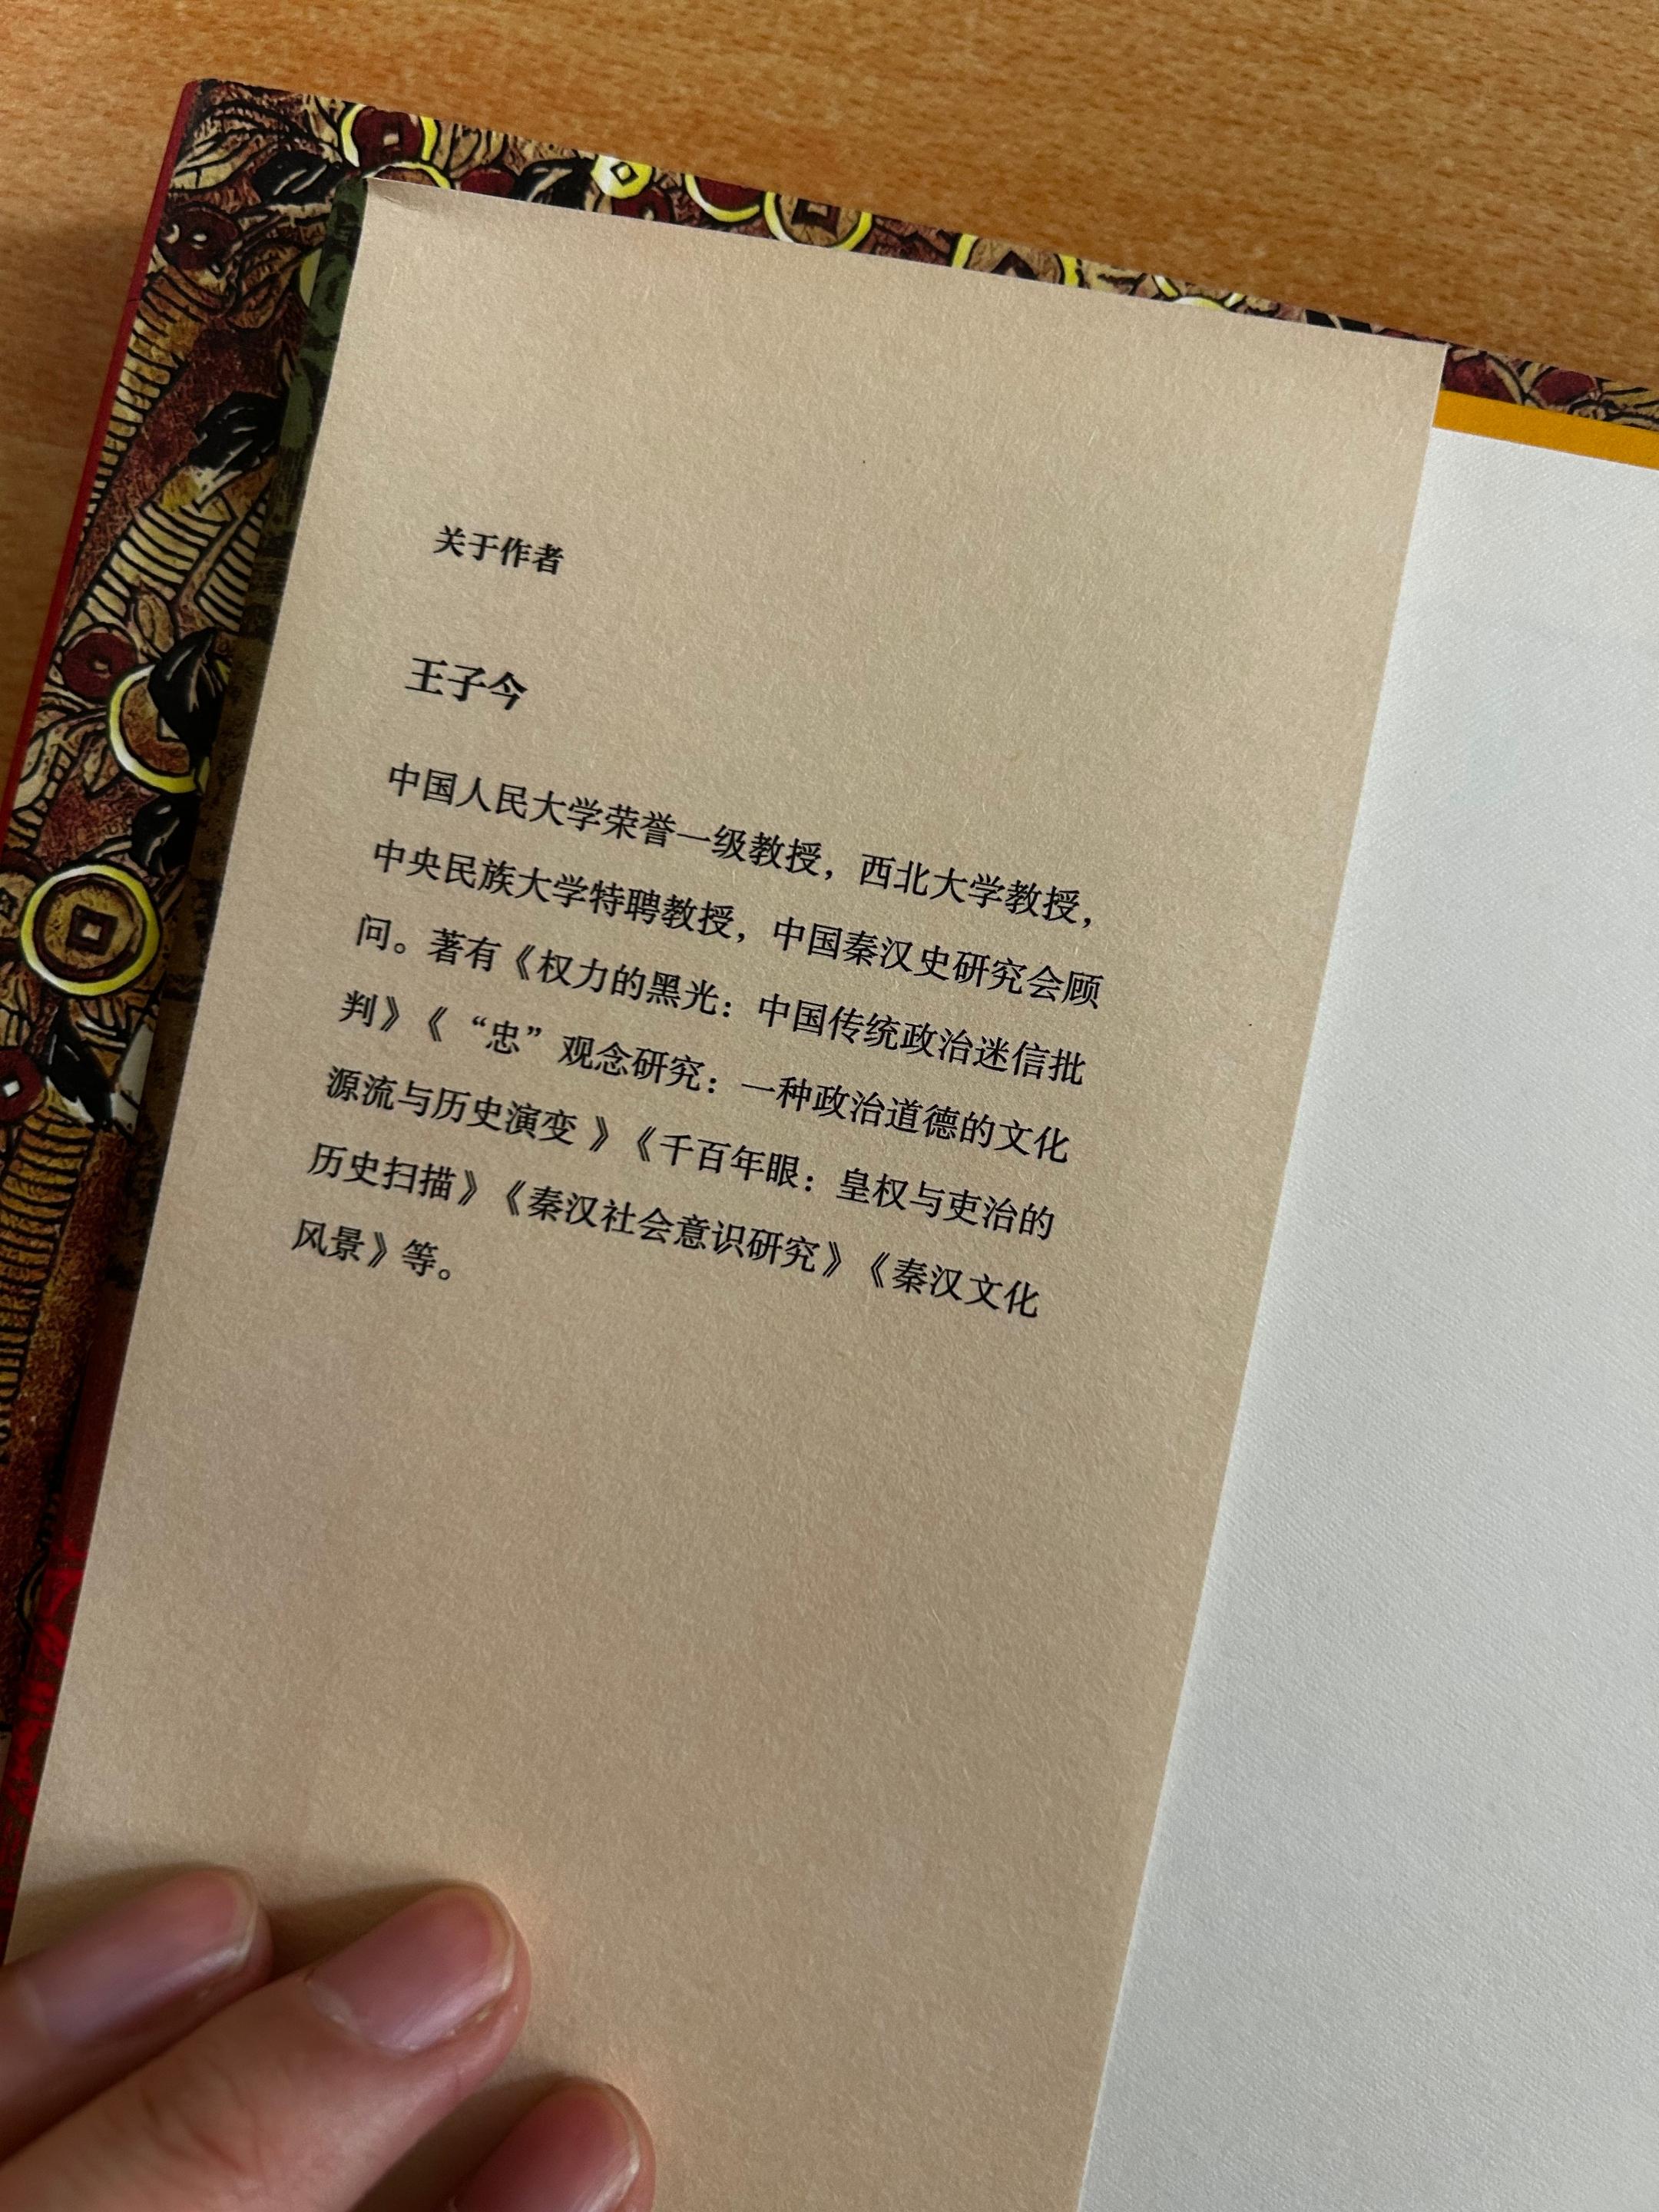 关于作者
王子今
中国人民大学荣誉一级教授，西北大学教授，
中央民族大学特聘教授，中国秦汉史研究会顾
问。著有《权力的黑光：中国传统政治迷信批
判》《“忠”观念研究：一种政治道德的文化
源流与历史演变》《千百年眼：皇权与吏治的
历史扫描》《秦汉社会意识研究》《秦汉文化
风景》等。